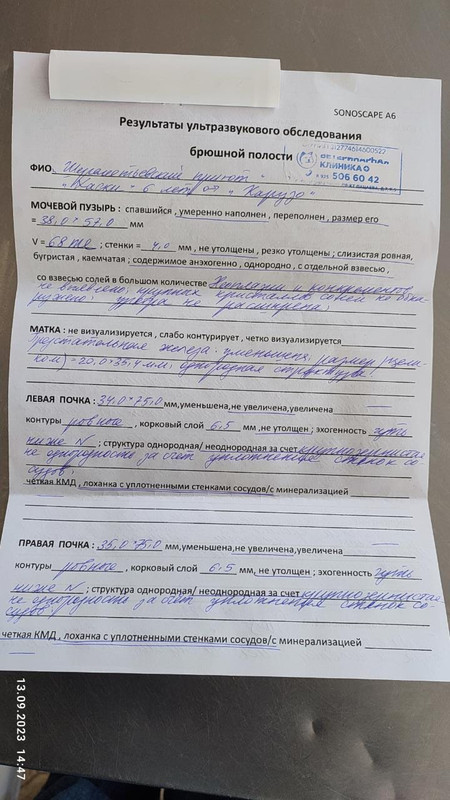 SONOSCAPE A6
Результаты ультразвукового обследования
брюшной полости
КЛИНИКА
506 60 42
ФИО: Шереметьевский приют
"Хаски" 6 лет "Карузо"
МОЧЕВОЙ ПУЗЫРЬ : спавшийся , умеренно наполнен , переполнен , размер его
= 38,0 * 57,0 мм
V = 68 ; стенки = 4,0 мм , не утолщены , резко утолщены ; слизистая ровная,
бугристая , каемчатая ; содержимое анэхогенно , однородно , с отдельной взвесью ,
со взвесью солей в большом количестве Неоплазии и конкрементов
не выявлено; крупных кристаллов солей не обна-
ружено; уретра не расширена;
МАТКА : не визуализируется , слабо контурирует , четко визуализируется
Предстательная железа - уменьшена размер (цели-
ком) = 20,0 * 35,4 мм; однородная структура
ЛЕВАЯ ПОЧКА : 34,0 * 75,0 мм,уменьшена,не увеличена,увеличена
контуры ровные , корковый слой 6,5 мм ,не утолщен ; эхогенность чуть
ниже N ; структура однородная/ неоднородная за счет крупнозернистая
не однородность за счет уплотнения стенок со-
судов;
четкая КМД , лоханка с уплотненными стенками сосудов/с минерализацией
ПРАВАЯ ПОЧКА : 35,0 * 75,0 мм,уменьшена,не увеличена,увеличена
контуры ровные , корковый слой 6,5 мм , не утолщен ; эхогенность чуть
ниже N ; структура однородная/ неоднородная за счет крупнозернистая
не однородность за счет уплотнения стенок со-
судов
четкая КМД , лоханка с уплотненными стенками сосудов/с минерализацией
13.09.2023 14:47